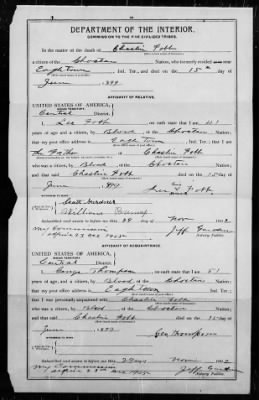 DEPARTMENT OF THE INTERIOR.
COMMISSION TO THE FIVE CIVILIZED TRIBES.
In the matter of the death of Charlie Fobb
a citizen of the Choctaw Nation, who formerly resided near
Eagletown, Ind. Ter., and died on the 15th day of
June, 1899
AFFIDAVIT OF RELATIVE.
UNITED STATES OF AMERICA,
INDIAN TERRITORY
Central District.
I, Fobb, on oath state that I am
years of age and a citizen, by Blood, of the Choctaw Nation;
that my post office address is Eagle Town, Ind. Ter.; that I am
the Father of Charlie Fobb
who was a citizen, by Blood, of the Choctaw Nation;
and that said Charlie Fobb died on the 15 day of
June, 1899
Fobb
Subscribed and sworn to before me this day of Nov 2
My Commission
Notary Public.
AFFIDAVIT OF ACQUAINTANCE.
UNITED STATES OF AMERICA,
INDIAN TERRITORY
Central District.
I, George Thompson, on oath state that I am 51
years of age, and a citizen by Blood, of the Choctaw Nation;
that my post office address is Eagletown, Ind. Ter.;
that I was personally acquainted with Charlie Fobb
who was a citizen, by Blood, of the Choctaw Nation;
and that said Charlie Fobb died on the 15 day of
June, 1899
Geo Thompson
Subscribed and sworn to before me this day of Nov 2
My Commission
Notary Public.